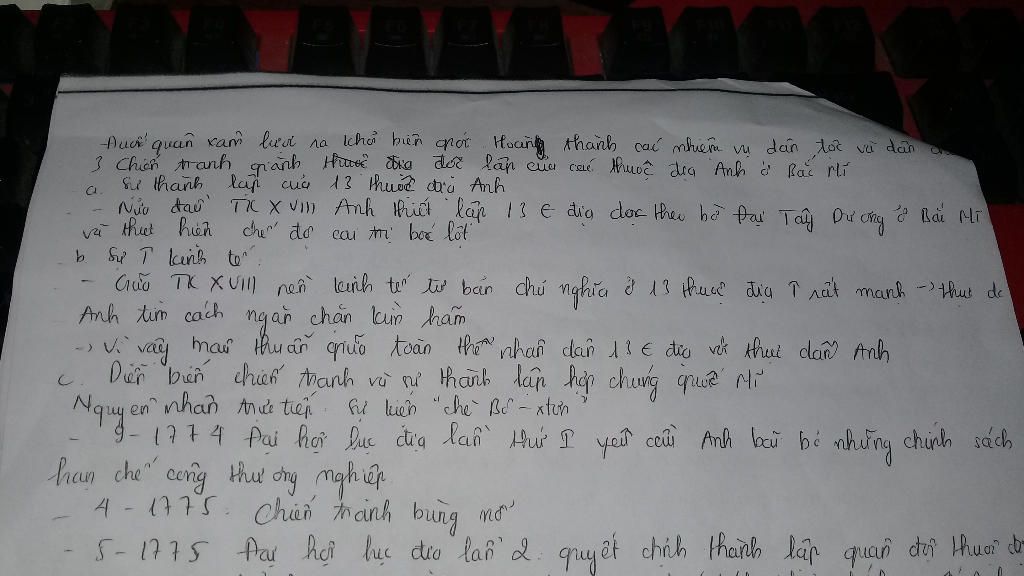 - Đuổi quân xâm lược ra khỏi biên giới Hoàng thành các nhiệm vụ dân tộc và dân
3 Chiến tranh giành thuộc địa độc lập của các thuộc địa Anh ở Bắc Mĩ
a. Sự thành lập của 13 thuộc địa Anh
- Nửa đầu TK XVIII Anh thiết lập 13 € địa dọc theo bờ Đại Tây Dương ở Bắc Mĩ
và thực hiện chế độ cai trị bóc lột
b. Sự T kinh tế
- Giữa TK XVIII nền kinh tế tư bản chủ nghĩa ở 13 thuộc địa T rất mạnh -> thực d
Anh tìm cách ngăn chặn kìm hãm
-> Vì vậy mâu thuẫn giữa toàn thể nhân dân 13 € địa với thực dân Anh
c. Diễn biến chiến tranh và sự thành lập hợp chúng quốc Mĩ
Nguyên nhân trực tiếp. Sự kiện "chè Bô-xtơn"
- 9-1774 Đại hội lục địa lần thứ I yêu cầu Anh bãi bỏ những chính sách
hạn chế công thương nghiệp
- 4-1775. Chiến tranh bùng nổ
- 5-1775 Đại hội lục địa lần 2. quyết định thành lập quân đội thuộc đị